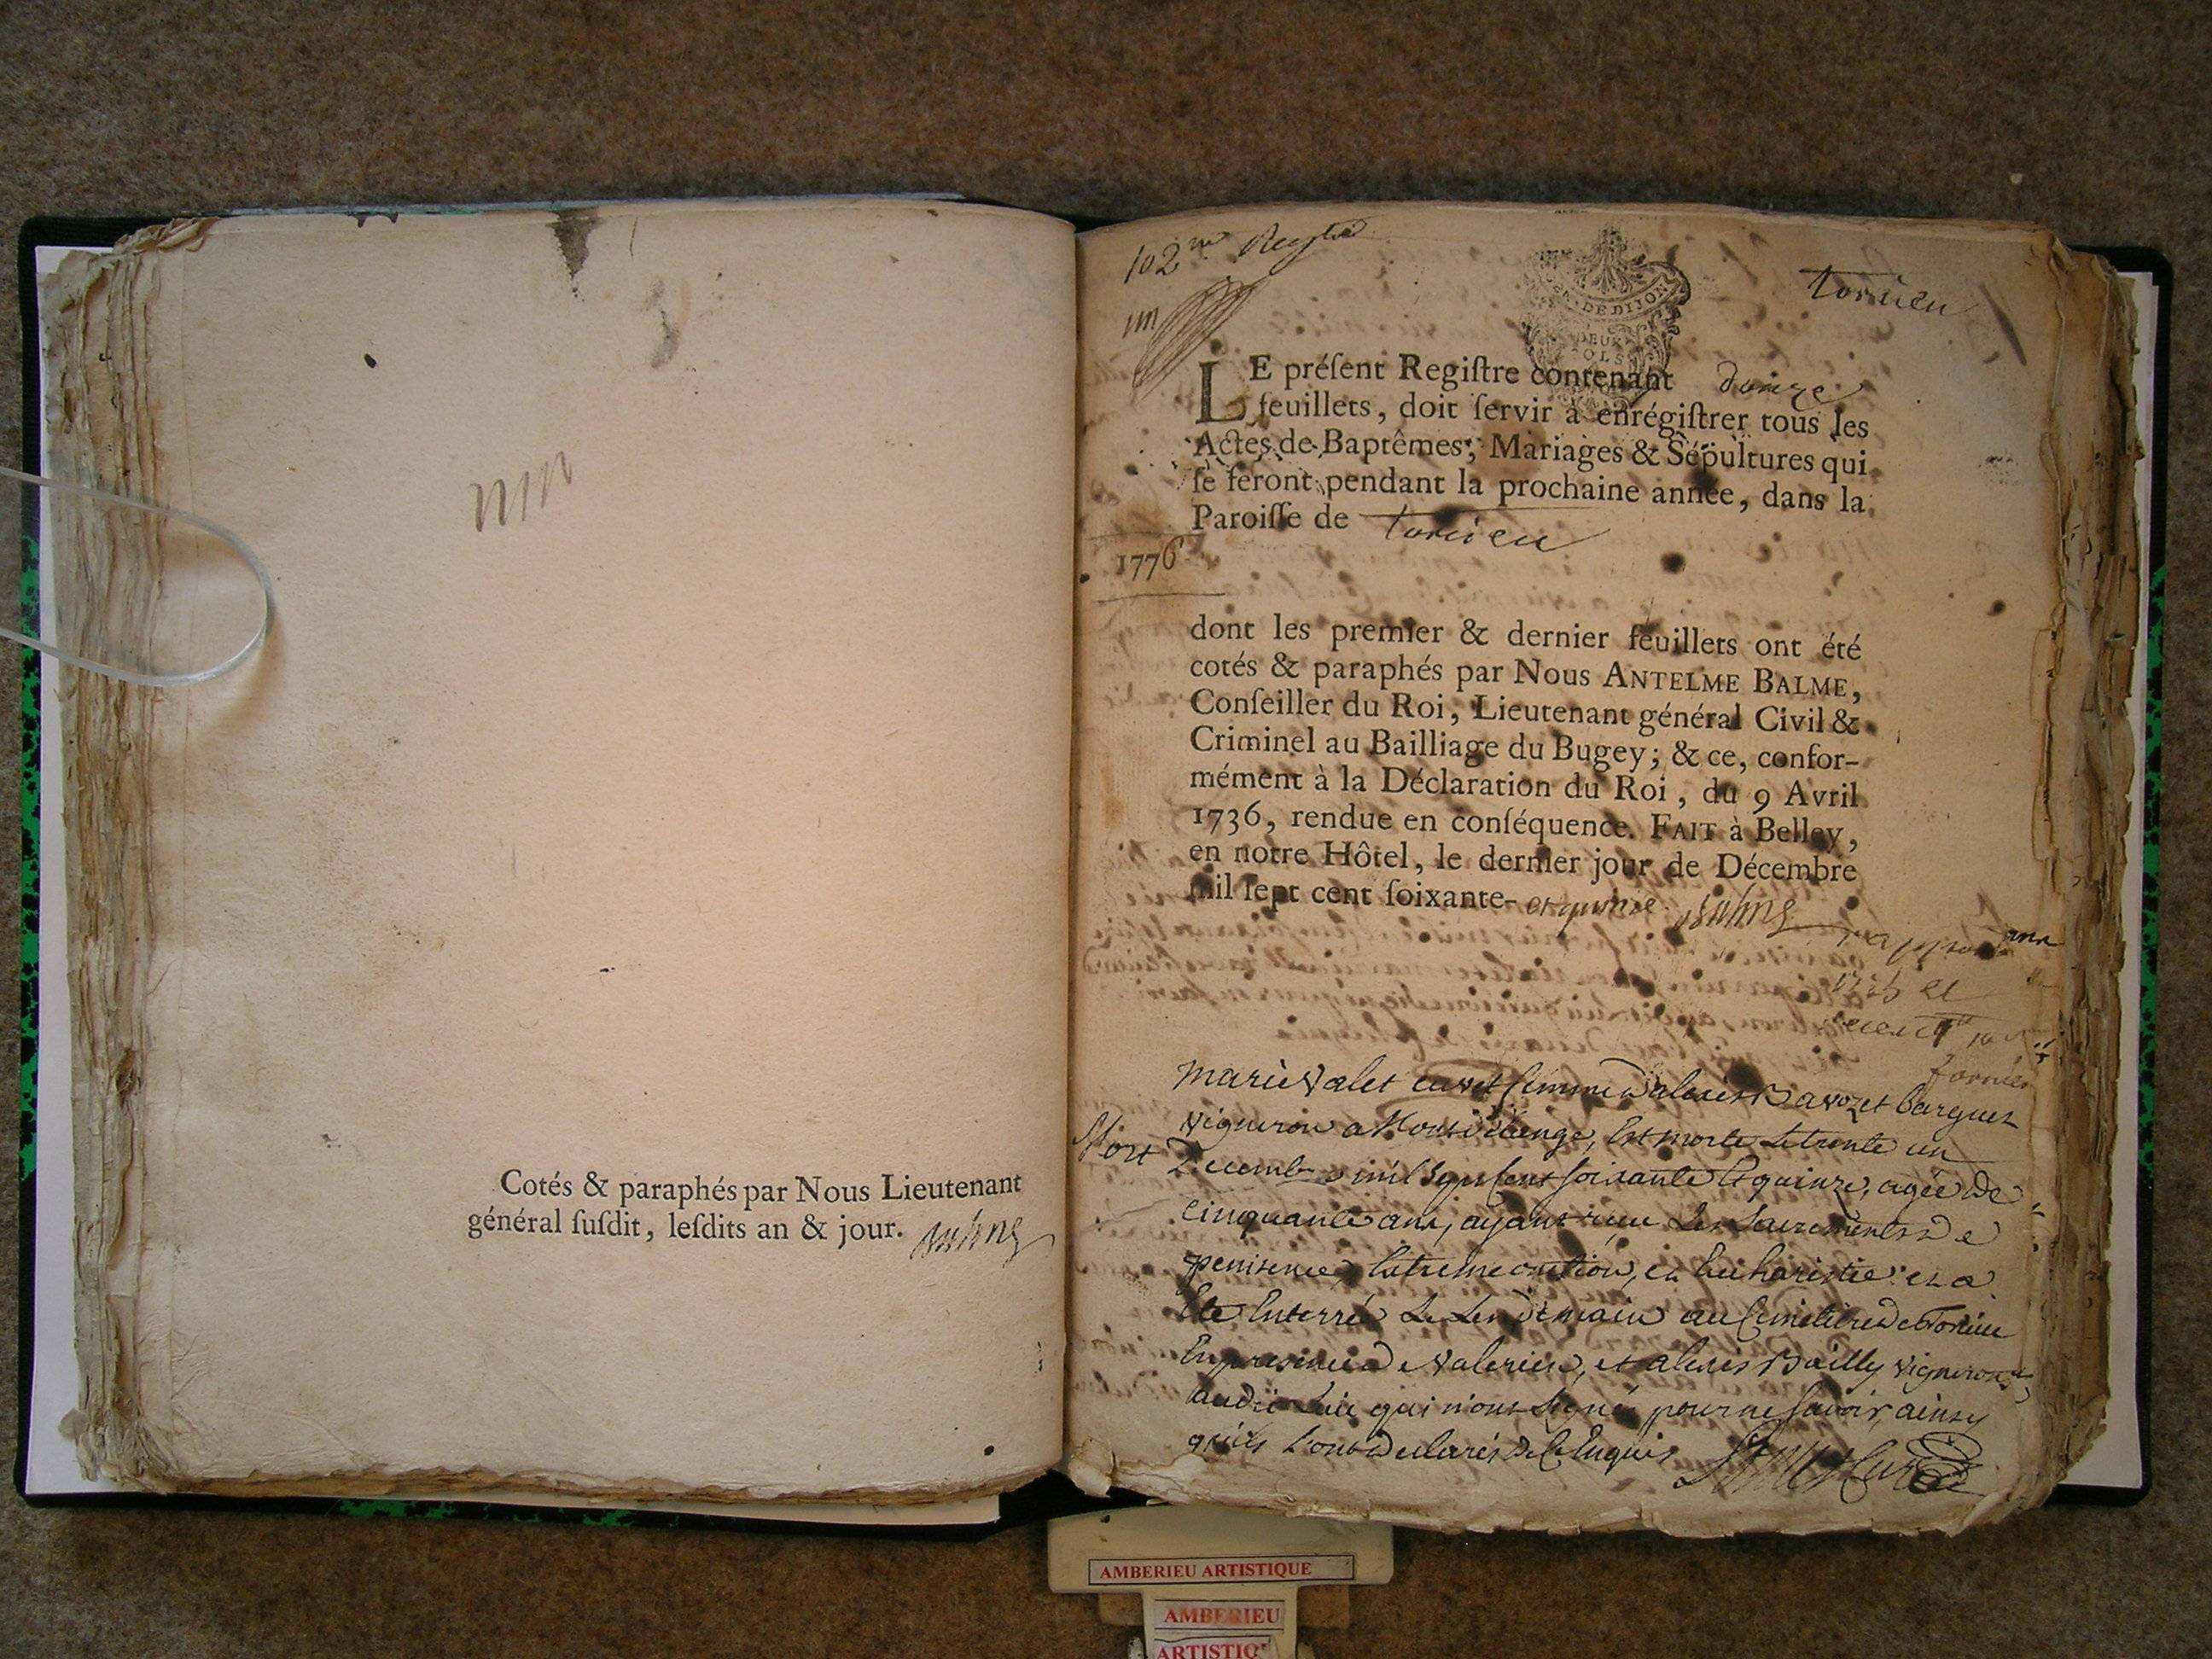 Cotés & paraphés par Nous Lieutenant
général ſuſdit, leſdits an & jour. Balme
102me Registre
torcieu
DE DIJON
DEUX
SOLS
LE préſent Regiſtre contenant douze
feuillets, doit ſervir à enrégiſtrer tous les
Actes de Baptêmes, Mariages & Sépultures qui
ſe feront pendant la prochaine année, dans la
Paroiſſe de torcieu
1776
dont les premier & dernier feuillets ont été
cotés & paraphés par Nous ANTELME BALME,
Conſeiller du Roi, Lieutenant général Civil &
Criminel au Bailliage du Bugey; & ce, confor-
mément à la Déclaration du Roi, du 9 Avril
1736, rendue en conſéquence. FAIT à Belley,
en notre Hôtel, le dernier jour de Décembre
mil ſept cent ſoixante- et quinze. Balme
Mort
marie valet femme
vigneron a est morte le trente un
Decembre mil sept cent soixante et quinze, agée de
cinquante ans, ayant reçu les sacrements de
penitence, extreme onction, et eucharistie: et a
eté enterrée le lendemain au cimetiere de torcieu
en presence de valerien, et alexis Bailly vignerons
audit lieu qui n'ont signé pour ne savoir, ainsy
qu'ils l'ont declarés de ce enquis curé
AMBERIEU ARTISTIQUE
AMBERIEU
ARTISTIQ